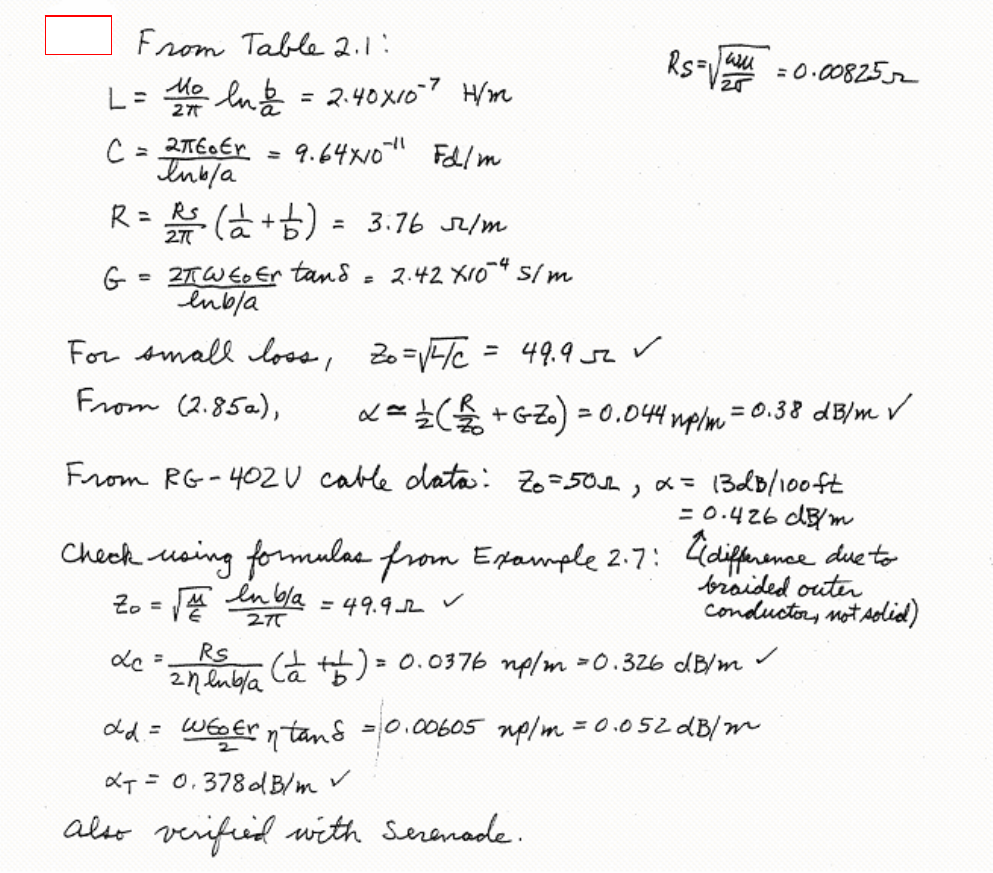 From Table 2.1:
Rs = √(ωμ/2σ) = 0.00825 Ω
L = μ₀/2π ln b/a = 2.40 x10⁻⁷ H/m
C = 2πε₀εr/ln b/a = 9.64 x10⁻¹¹ Fd/m
R = Rs/2π (1/a + 1/b) = 3.76 Ω/m
G = 2πωε₀εr/ln b/a tan δ = 2.42 x10⁻⁴ S/m
For small loss, Z₀ = √L/C = 49.9 Ω ✓
From (2.85a), α ≃ ½(R/Z₀ + GZ₀) = 0.044 np/m = 0.38 dB/m ✓
From RG-402U cable data: Z₀=50Ω, α = 13dB/100ft
= 0.426 dB/m
Check using formulas from Example 2.7: ↑(difference due to
braided outer
conductor, not solid)
Z₀ = √(μ/ε) ln b/a/2π = 49.9 Ω ✓
αc = Rs/2η ln b/a (1/a + 1/b) = 0.0376 np/m = 0.326 dB/m ✓
αd = ωε₀εr/2 η tan δ = 0.00605 np/m = 0.052 dB/m
αT = 0.378 dB/m ✓
Also verified with Serenade.